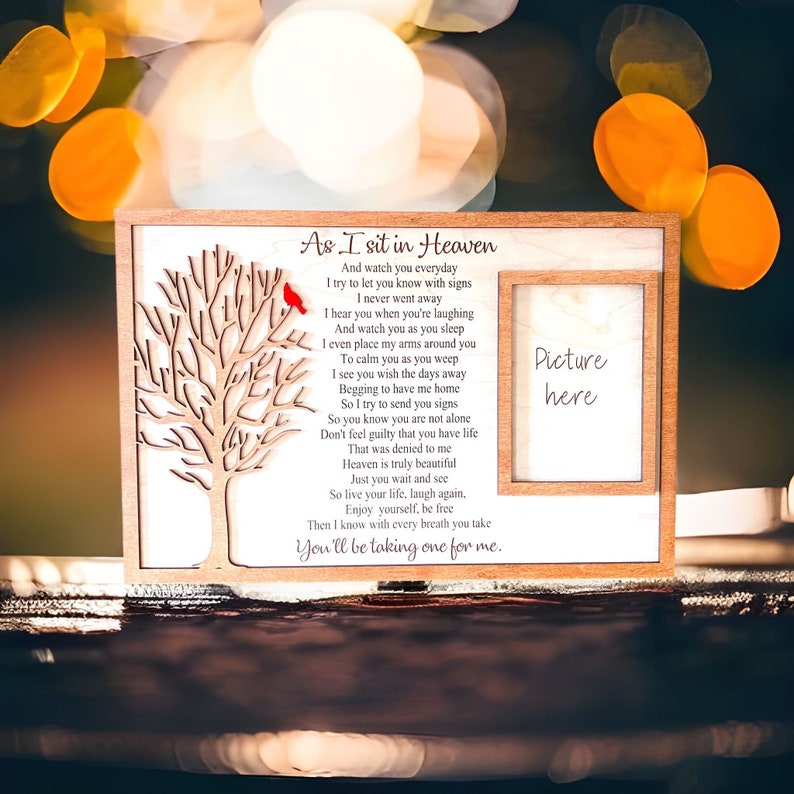 As I sit in Heaven
And watch you everyday
I try to let you know with signs
I never went away
I hear you when you're laughing
And watch you as you sleep
I even place my arms around you
To calm you as you weep
I see you wish the days away
Begging to have me home
So I try to send you signs
So you know you are not alone
Don't feel guilty that you have life
That was denied to me
Heaven is truly beautiful
Just you wait and see
So live your life, laugh again,
Enjoy yourself, be free
Then I know with every breath you take
You'll be taking one for me.
Picture
here